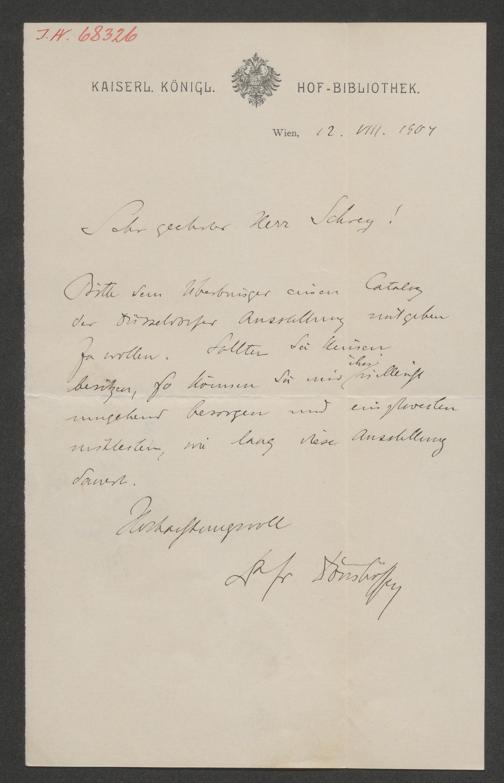 J.N. 68326
KAISERL. KÖNIGL. HOF-BIBLIOTHEK.
Wien, 12. VIII. 1904
Sehr geehrter Herr Schrey!
Bitte dem Überbringer einen Catalog
der Düsseldorfer Ausstellung mitgeben
zu wollen. Sollten Sie keinen
besitzen, so können Sie mir ihn vielleicht
umgehend besorgen und einstweilen
mittheilen, wie lang diese Ausstellung
dauert.
Hochachtungsvoll
Dr Fr